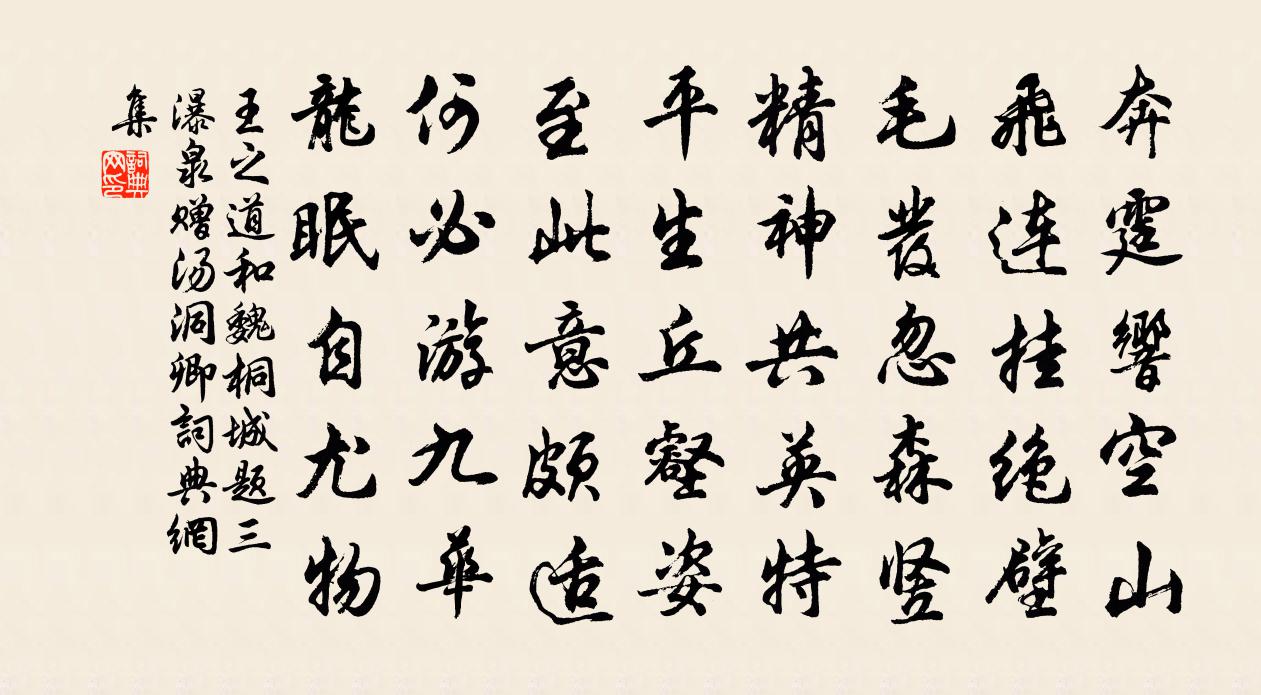 奔霆響空山
飛连挂绝壁
毛發忽森竖
精神共英特
平生丘壑姿
至此意颇适
何必游九華
龍眠自尤物
王之道和魏桐城题三
瀑泉赠汤洞卿詞典網
集
詞典網印